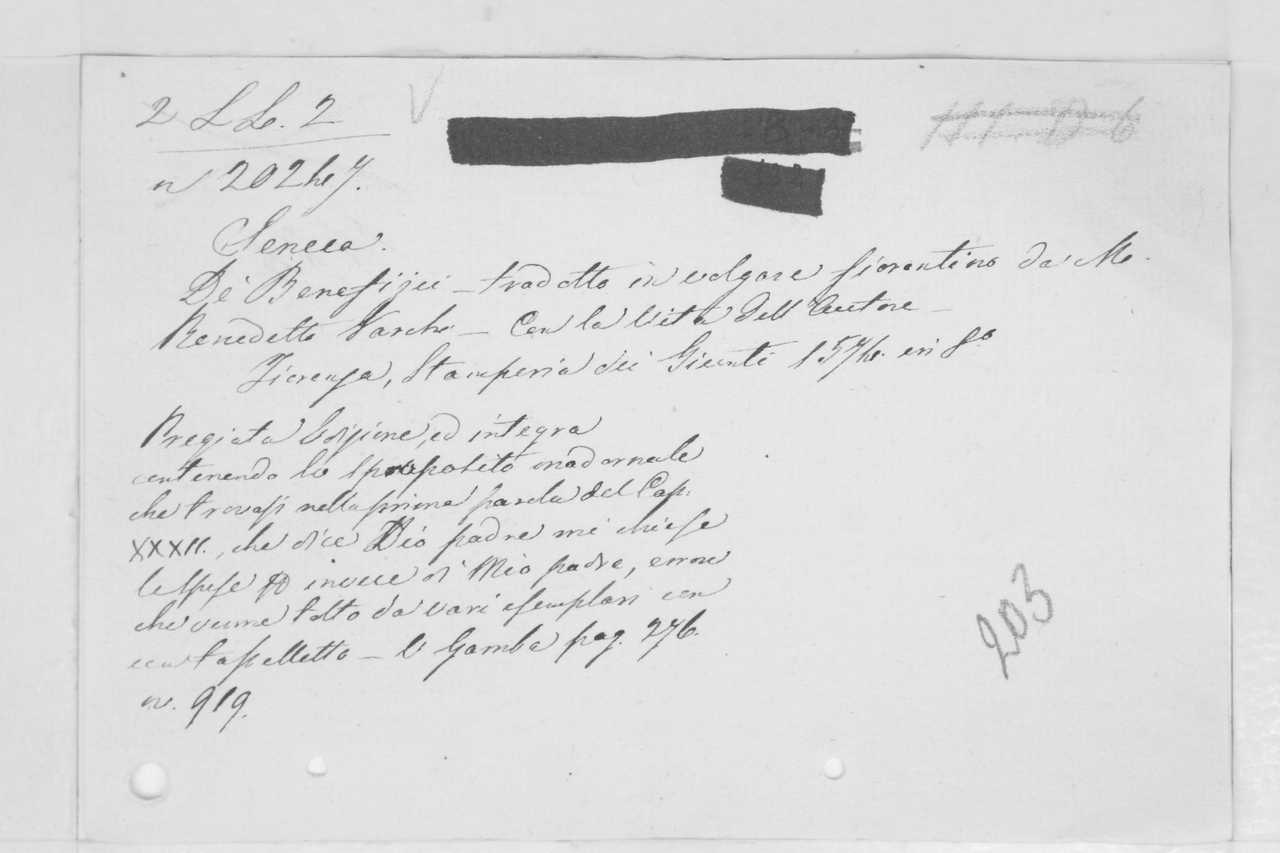 2 LL. 2
V
n 202
Seneca.
De' Benefizii – tradotto in volgare fiorentino da M.
Benedetto Varchi – Con la Vita dell' Autore –
Fiorenza, Stamperia dei Giunti 1574. in 8º
Pregiata Edizione, ed integra
contenendo lo sproposito madornale
che trovasi nella prima parola del Cap.
XXXII., che dice Dio padre mi chiese
le spese invece di Mio padre, errore
che venne tolto da vari esemplari con
un tasselletto – V Gamba pag. 276.
n. 919.
203